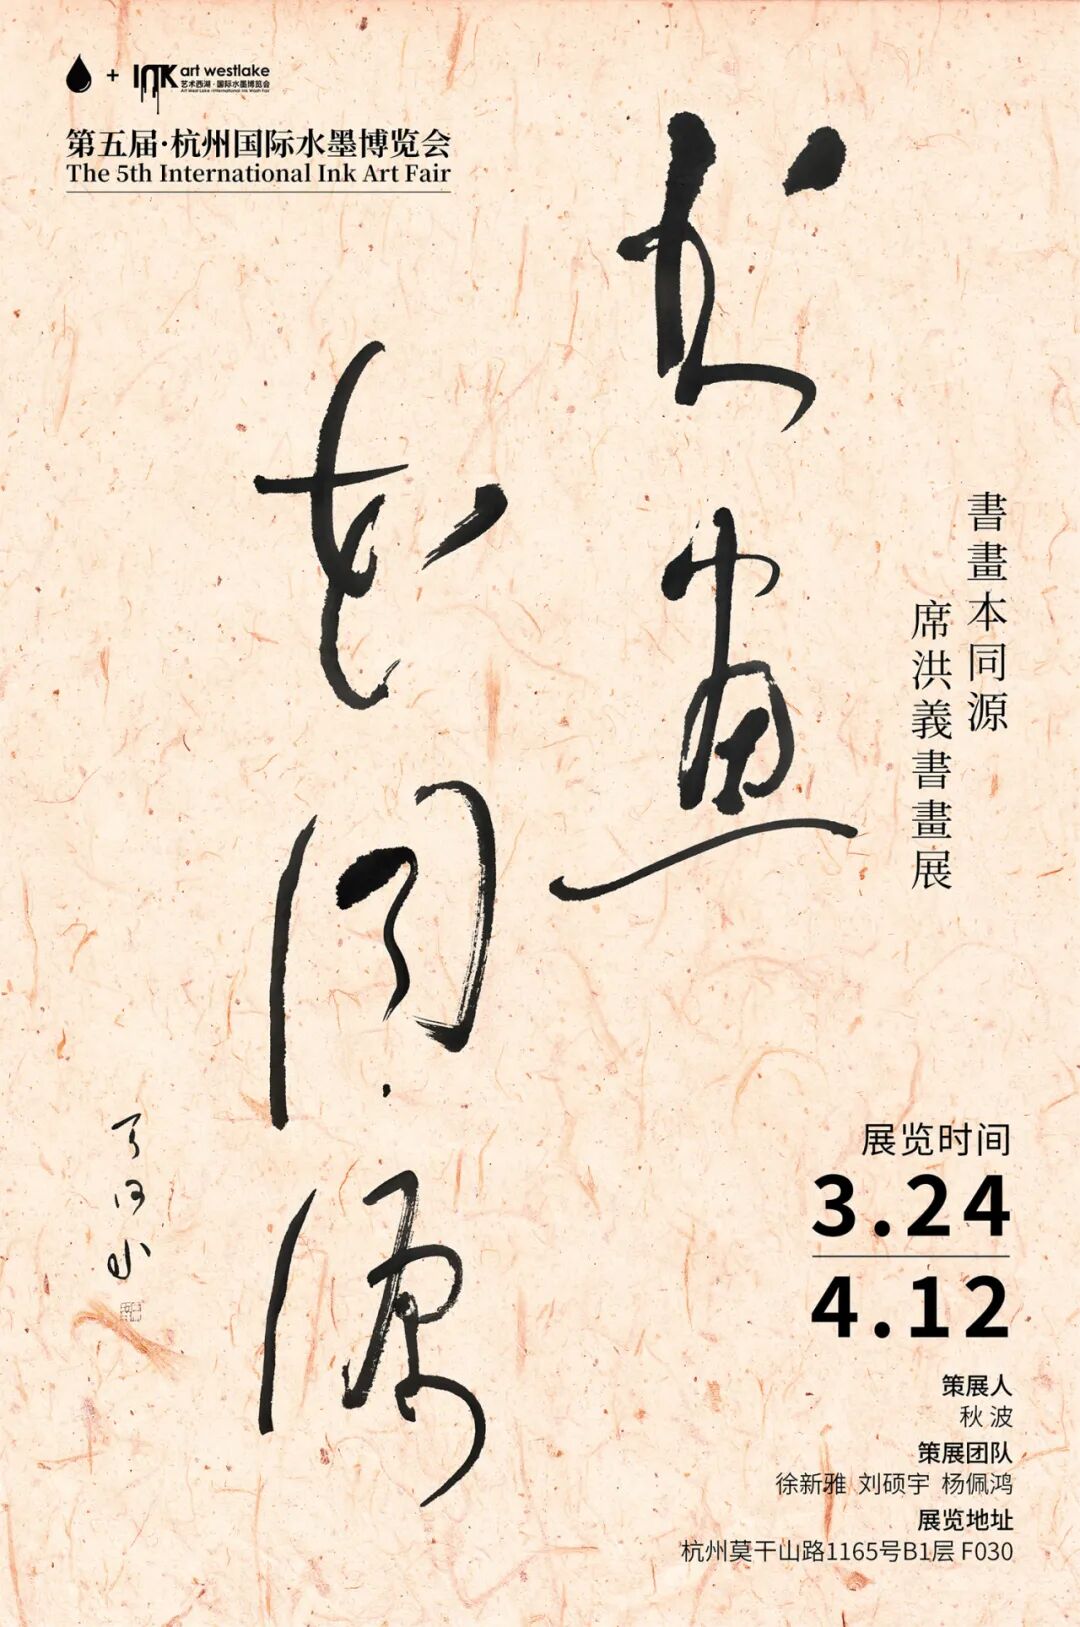 INK art westlake
艺术西湖·国际水墨博览会
Art West Lake International Ink Wash Fair
第五届·杭州国际水墨博览会
The 5th International Ink Art Fair
书画
本同源
書畫本同源
席洪義書畫展
展览时间
3.24
4.12
策展人
秋波
策展团队
徐新雅 刘硕宇 杨佩鸿
展览地址
杭州莫干山路1165号B1层 F030